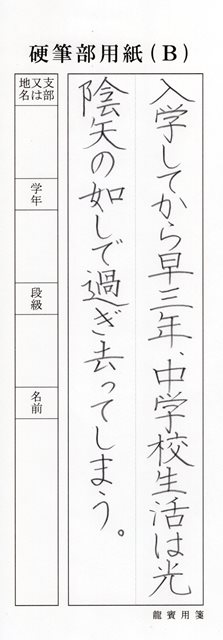 硬筆部用紙（B）
入学してから早三年、中学校生活は光
陰矢の如しで過ぎ去ってしまう。
支部
又は
地名
学年
段級
名前
龍賓用箋